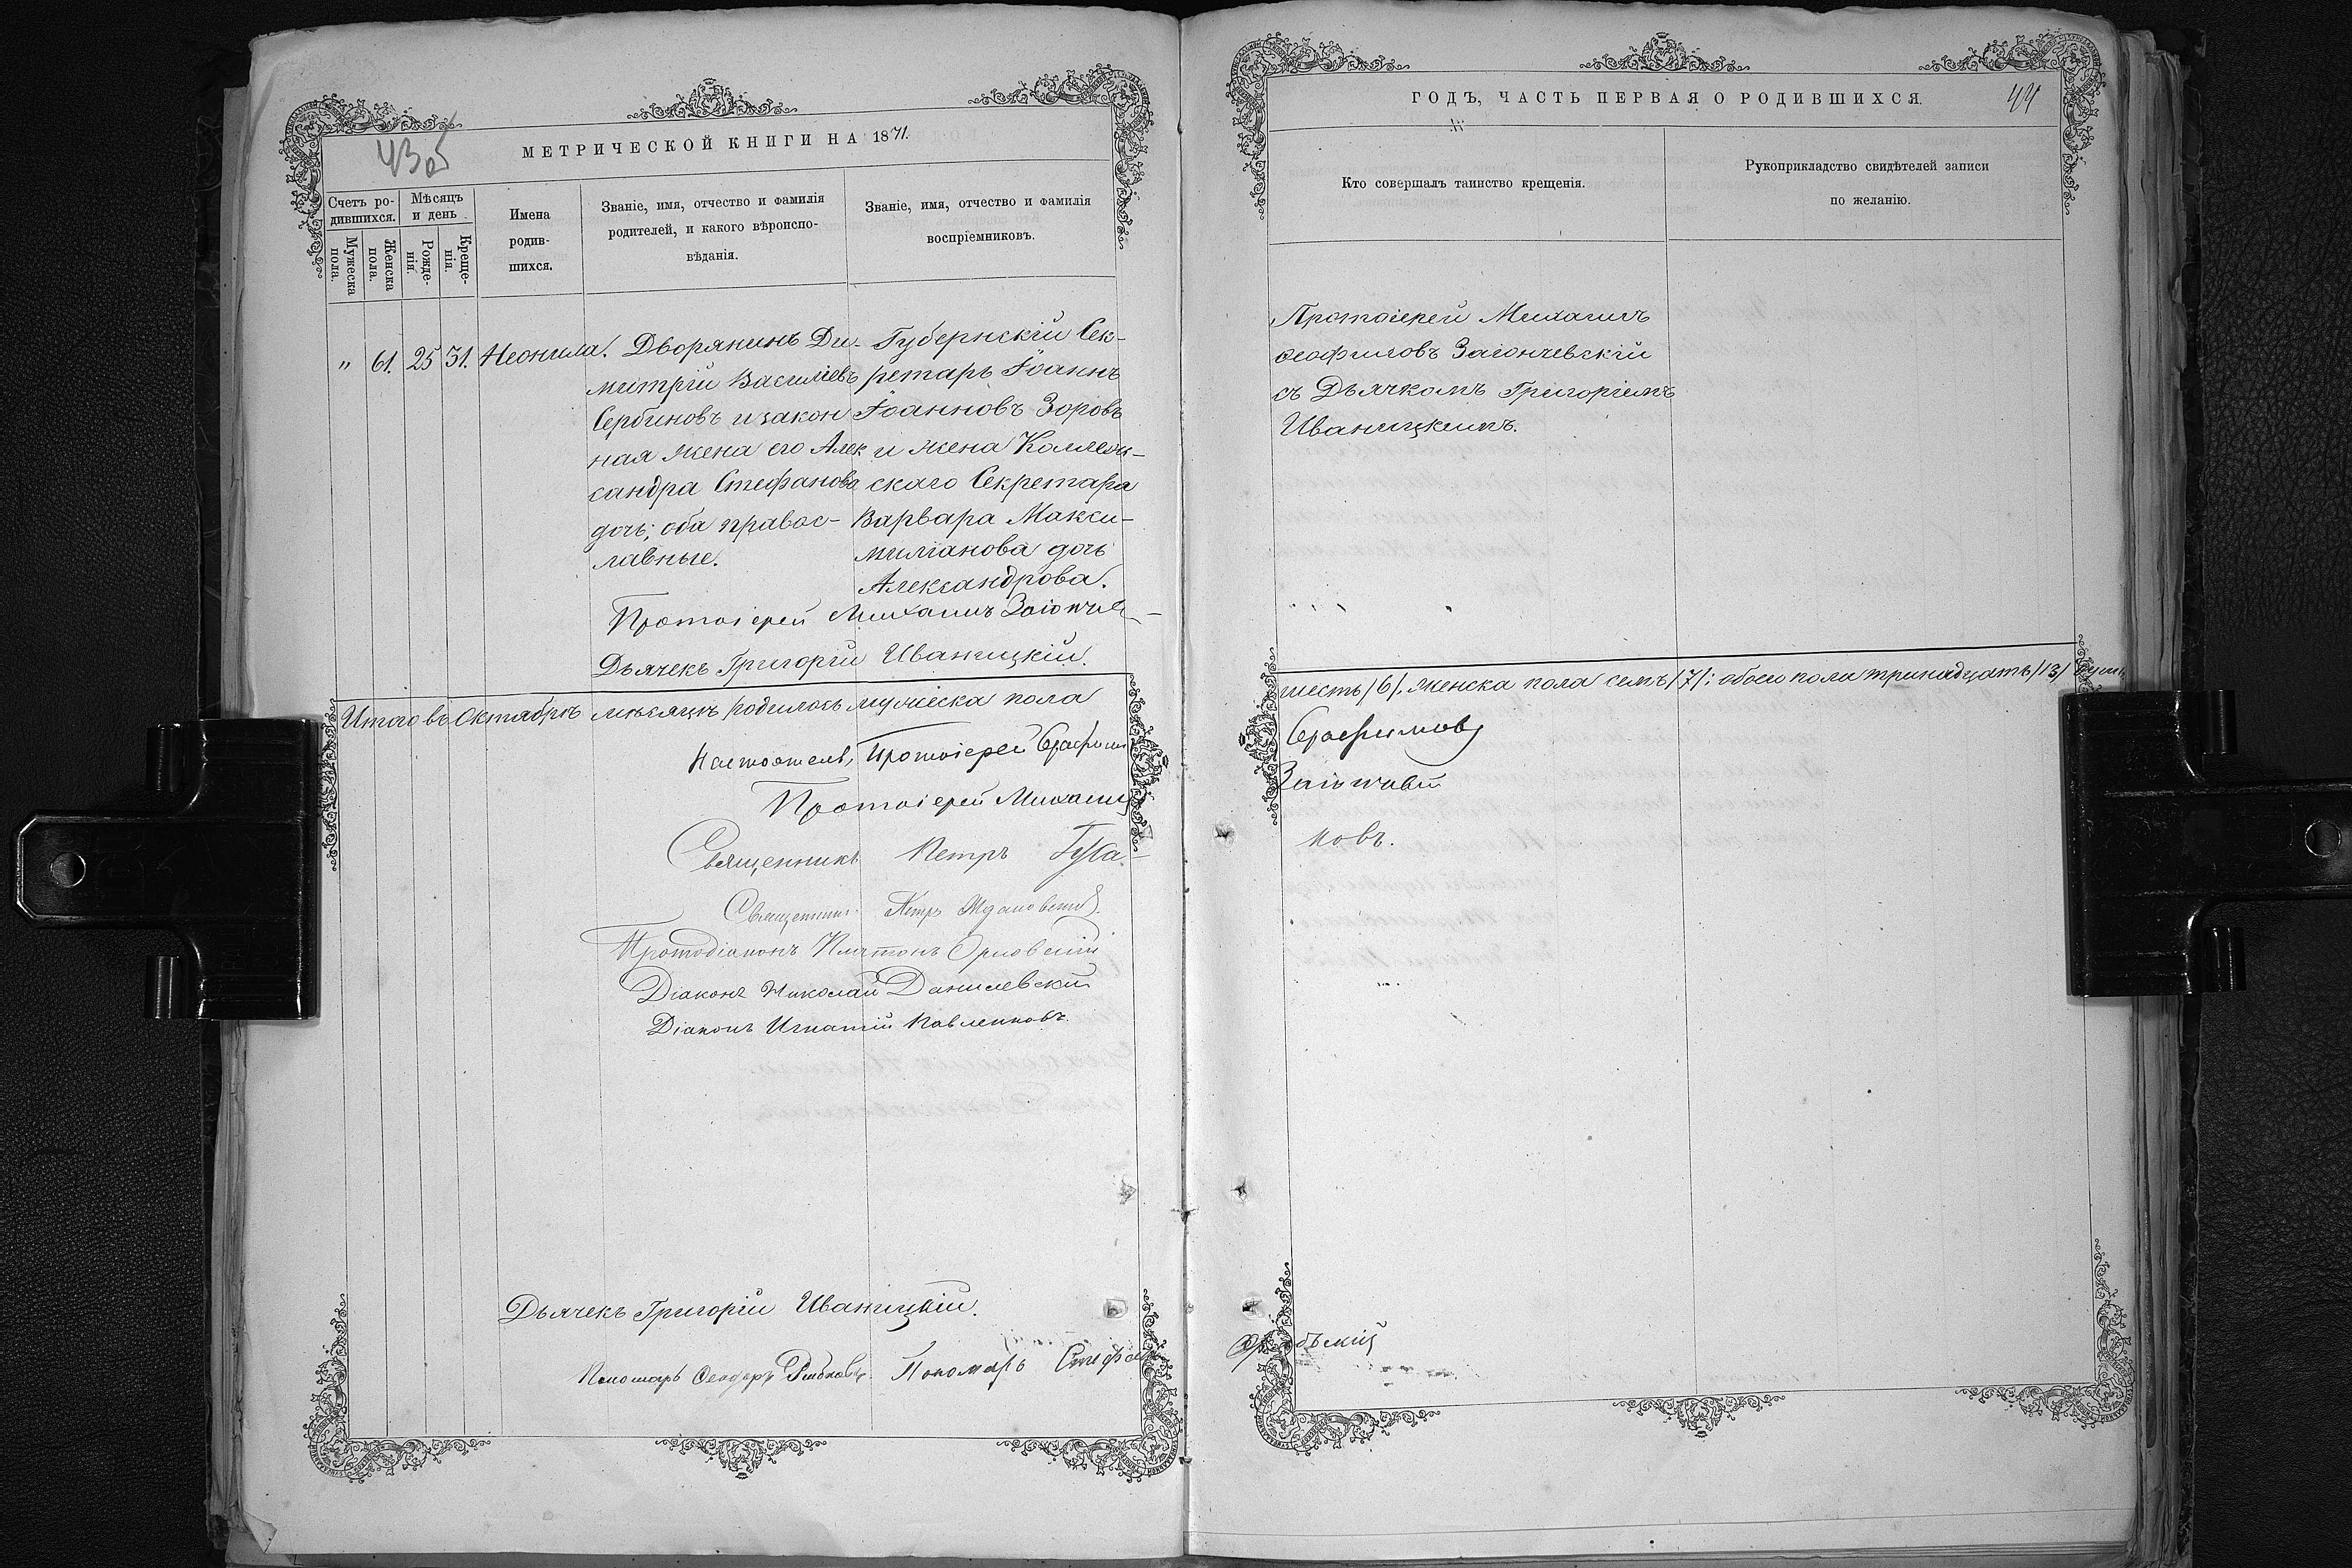 43 об
МЕТРИЧЕСКОЙ КНИГИ НА 1871.
Счетъ ро-
дившихся.
Мужеска
пола.
Женска
пола.
Мѣсяцъ
и день
Рожде-
нія.
Креще-
нія.
Имена
родив-
шихся.
Званіе, имя, отчество и фамилія
родителей, и какого вѣроиспо-
вѣданія.
Званіе, имя, отчество и фамилія
воспріемниковъ.
" 61. 25 31. Неонила.
Дворянинъ Ди-
митрій Василіевъ
Сербиновъ и закон
ная жена его Алек
сандра Стефанова
дочь; оба правос-
лавные.
Губернскій Сек-
ретарь Іоаннъ
Іоанновъ Зоровъ
и жена Коллеж-
скаго Секретаря
Варвара Макси-
миліанова дочь
Александрова.
Протоіерей Михаилъ
Дьячекъ Григорій Иваницкій.
Итого въ Октябрѣ мѣсяцѣ родилось мужеска пола
Настоятель, Протоіерей Серафим
Протоіерей Михаилъ
Священникъ Петръ
Священникъ Петръ
Протодіаконъ Платонъ Орловскій
Діаконъ Николай Данилевскій
Діаконъ Игнатій Павленковъ.
Дьячекъ Григорій Иваницкій.
Пономарь Ѳеодоръ Пономарь Стефанъ
ГОДЪ, ЧАСТЬ ПЕРВАЯ О РОДИВШИХСЯ.
44
Кто совершалъ таинство крещенія.
Рукоприкладство свидѣтелей записи
по желанію.
Протоіерей Михаилъ
Ѳеофиловъ Заіончевскій
съ Дьячкомъ Григоріемъ
Иваницкимъ.
шесть /6/. женска пола семь /7/: обоего пола тринадцать /13/ душъ
Серафимовъ
ковъ.